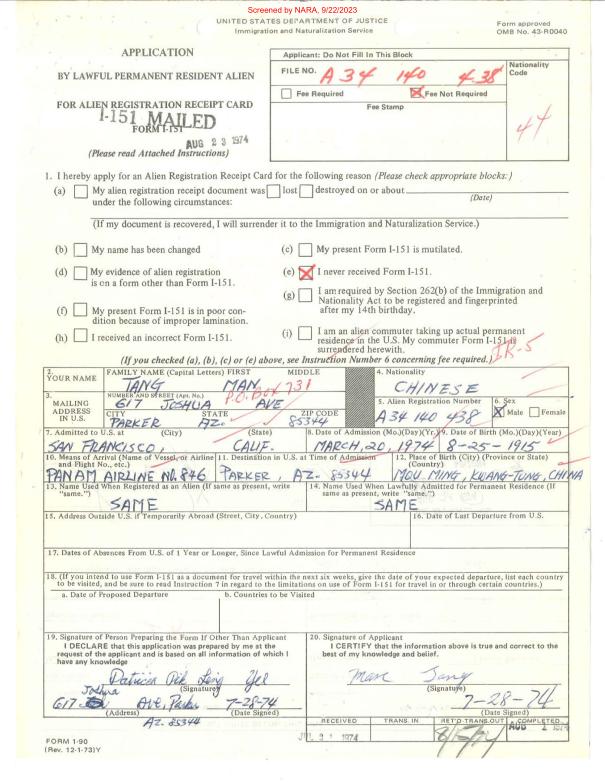 Screened by NARA, 9/22/2023
UNITED STATES DEPARTMENT OF JUSTICE
Immigration and Naturalization Service
Form approved
OMB No. 43-R0040
APPLICATION
BY LAWFUL PERMANENT RESIDENT ALIEN
FOR ALIEN REGISTRATION RECEIPT CARD
FORM I-151
I-151 MAILED
AUG 23 1974
(Please read Attached Instructions)
Applicant: Do Not Fill In This Block
FILE NO. A 34 140 438
Nationality Code
44
Fee Required
Fee Not Required
Fee Stamp
1. I hereby apply for an Alien Registration Receipt Card for the following reason (Please check appropriate blocks:)
(a) My alien registration receipt document was lost destroyed on or about
under the following circumstances:
(Date)
(If my document is recovered, I will surrender it to the Immigration and Naturalization Service.)
(b) My name has been changed
(c) My present Form I-151 is mutilated.
(d) My evidence of alien registration
is on a form other than Form I-151.
(e) I never received Form I-151.
(f) My present Form I-151 is in poor con-
dition because of improper lamination.
(g) I am required by Section 262(b) of the Immigration and
Nationality Act to be registered and fingerprinted
after my 14th birthday.
(h) I received an incorrect Form I-151.
(i) I am an alien commuter taking up actual permanent
residence in the U.S. My commuter Form I-151 is
surrendered herewith.
(If you checked (a), (b), (c) or (e) above, see Instruction Number 6 concerning fee required.)
IR-5
2. YOUR NAME
FAMILY NAME (Capital Letters) FIRST MIDDLE
TANG MAN
4. Nationality
CHINESE
3. MAILING ADDRESS IN U.S.
NUMBER AND STREET (Apt. No.)
P.O. Box 731
617 JOSHUA AVE
CITY STATE ZIP CODE
PARKER AZ. 85344
5. Alien Registration Number
A34 140 438
6. Sex
X Male Female
7. Admitted to U.S. at (City) (State)
SAN FRANCISCO, CALIF.
8. Date of Admission (Mo.)(Day)(Yr.)
MARCH, 20, 1974
9. Date of Birth (Mo.)(Day)(Year)
8-25-1915
10. Means of Arrival (Name of Vessel, or Airline
and Flight No., etc.)
PANAM AIRLINE NO. 846
11. Destination in U.S. at Time of Admission
PARKER, AZ. 85344
12. Place of Birth (City) (Province or State)
(Country)
MOU MING, KWANG-TUNG, CHINA
13. Name Used When Registered as an Alien (If same as present, write
"same.")
SAME
14. Name Used When Lawfully Admitted for Permanent Residence (If
same as present, write "same")
SAME
15. Address Outside U.S. if Temporarily Abroad (Street, City, Country)
16. Date of Last Departure from U.S.
17. Dates of Absences From U.S. of 1 Year or Longer, Since Lawful Admission for Permanent Residence
18. (If you intend to use Form I-151 as a document for travel within the next six weeks, give the date of your expected departure, list each country
to be visited, and be sure to read Instruction 7 in regard to the limitations on use of Form I-151 for travel in or through certain countries.)
a. Date of Proposed Departure
b. Countries to be Visited
19. Signature of Person Preparing the Form If Other Than Applicant
I DECLARE that this application was prepared by me at the
request of the applicant and is based on all information of which I
have any knowledge
Patricia Pik Ling Yee
(Signature)
Joshua
617 Ave, Parker 7-28-74
(Address) (Date Signed)
AZ. 85344
20. Signature of Applicant
I CERTIFY that the information above is true and correct to the
best of my knowledge and belief.
Man Tang
(Signature)
7-28-74
(Date Signed)
RECEIVED TRANS. IN RET'D-TRANS. OUT COMPLETED
JUL 31 1974
FORM I-90
(Rev. 12-1-73)Y